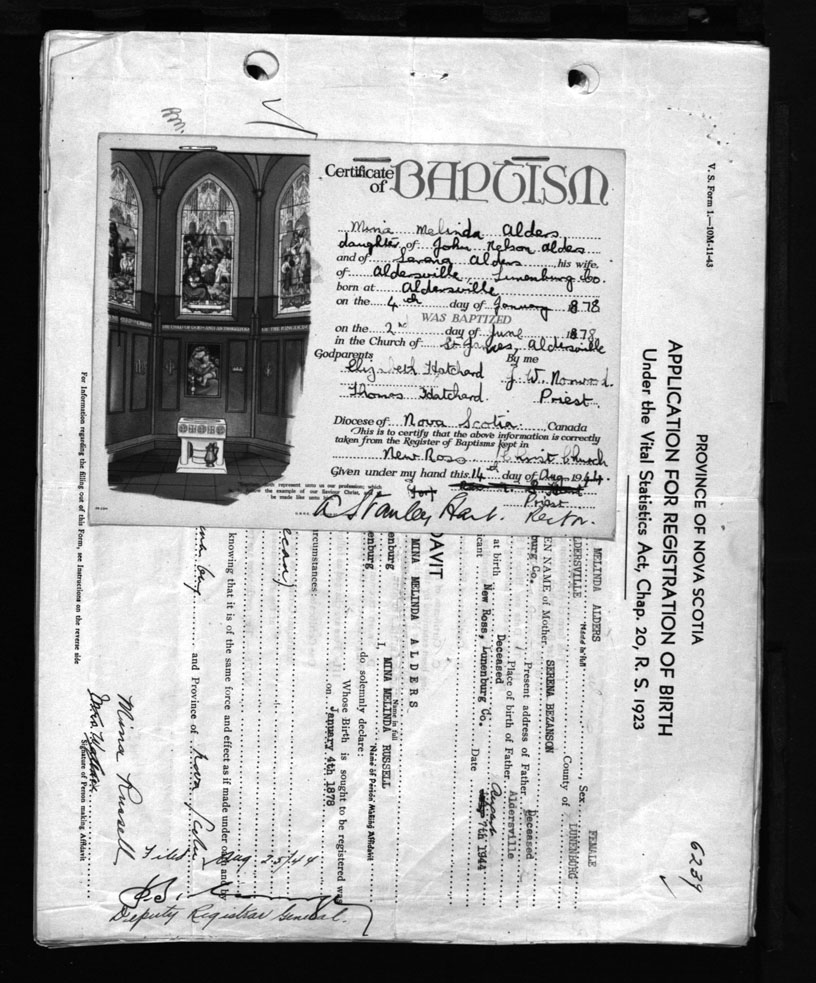 Certificate of BAPTISM
Mina Melinda Alders
daughter of John Nelson Alders
and of Serena Alders, his wife,
of Aldersville, Lunenburg Co.
born at Aldersville
on the 4th day of January 1878
WAS BAPTIZED
on the 2nd day of June 1878
in the Church of St James, Aldersville
Godparents By me
Elizabeth Hatchard J. W. Norwood.
Thomas Hatchard. Priest.
Diocese of Nova Scotia, Canada
This is to certify that the above information is correctly
taken from the Register of Baptisms kept in
New Ross Christ Church
Given under my hand this 14th day of Aug 1944.
(for)
Priest
A Stanley Hart. Rector.
represent unto us our profession; which
the example of our Saviour Christ,
be made like unto
V. S. Form 1.—10M-11-43
PROVINCE OF NOVA SCOTIA
APPLICATION FOR REGISTRATION OF BIRTH
Under the Vital Statistics Act, Chap. 20, R. S. 1923
6239
MELINDA ALDERS Name in full Sex FEMALE
LDERSVILLE County of LUNENBURG
EN NAME of Mother. SERENA BEZANSON
burg Co. Present address of Father. Deceased
Place of birth of Father. Aldersville
at birth Deceased
icant New Ross, Lunenburg Co. Date August 7th 1944
DAVIT
MINA MELINDA ALDERS
Name in full
enburg I, MINA MELINDA RUSSELL
Name of Person Making Affidavit
enburg do solemnly declare:
I. Whose Birth is sought to be registered was
on January 4th 1878
ircumstances:
knowing that it is of the same force and effect as if made under oath and by
and Province of Nova Scotia
Mina Russell
Signature of Person making Affidavit
Filed Aug 25/44
Deputy Registrar General.
For Information regarding the filling out of this Form, see Instructions on the reverse side